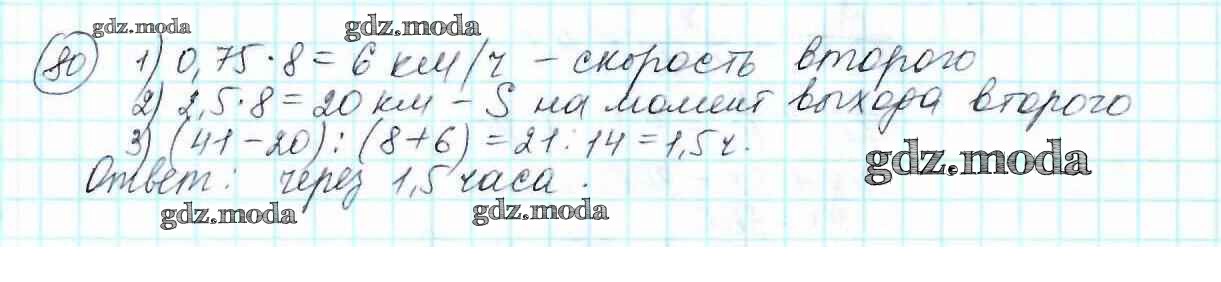 gdz.moda gdz.moda
80 1) 0,75·8=6 км/ч – скорость второго
2) 2,5·8=20 км – S на момент выхода второго
3) (41–20):(8+6)=21:14=1,5 ч.
gdz.moda
Ответ: через 1,5 часа.
gdz.moda gdz.moda